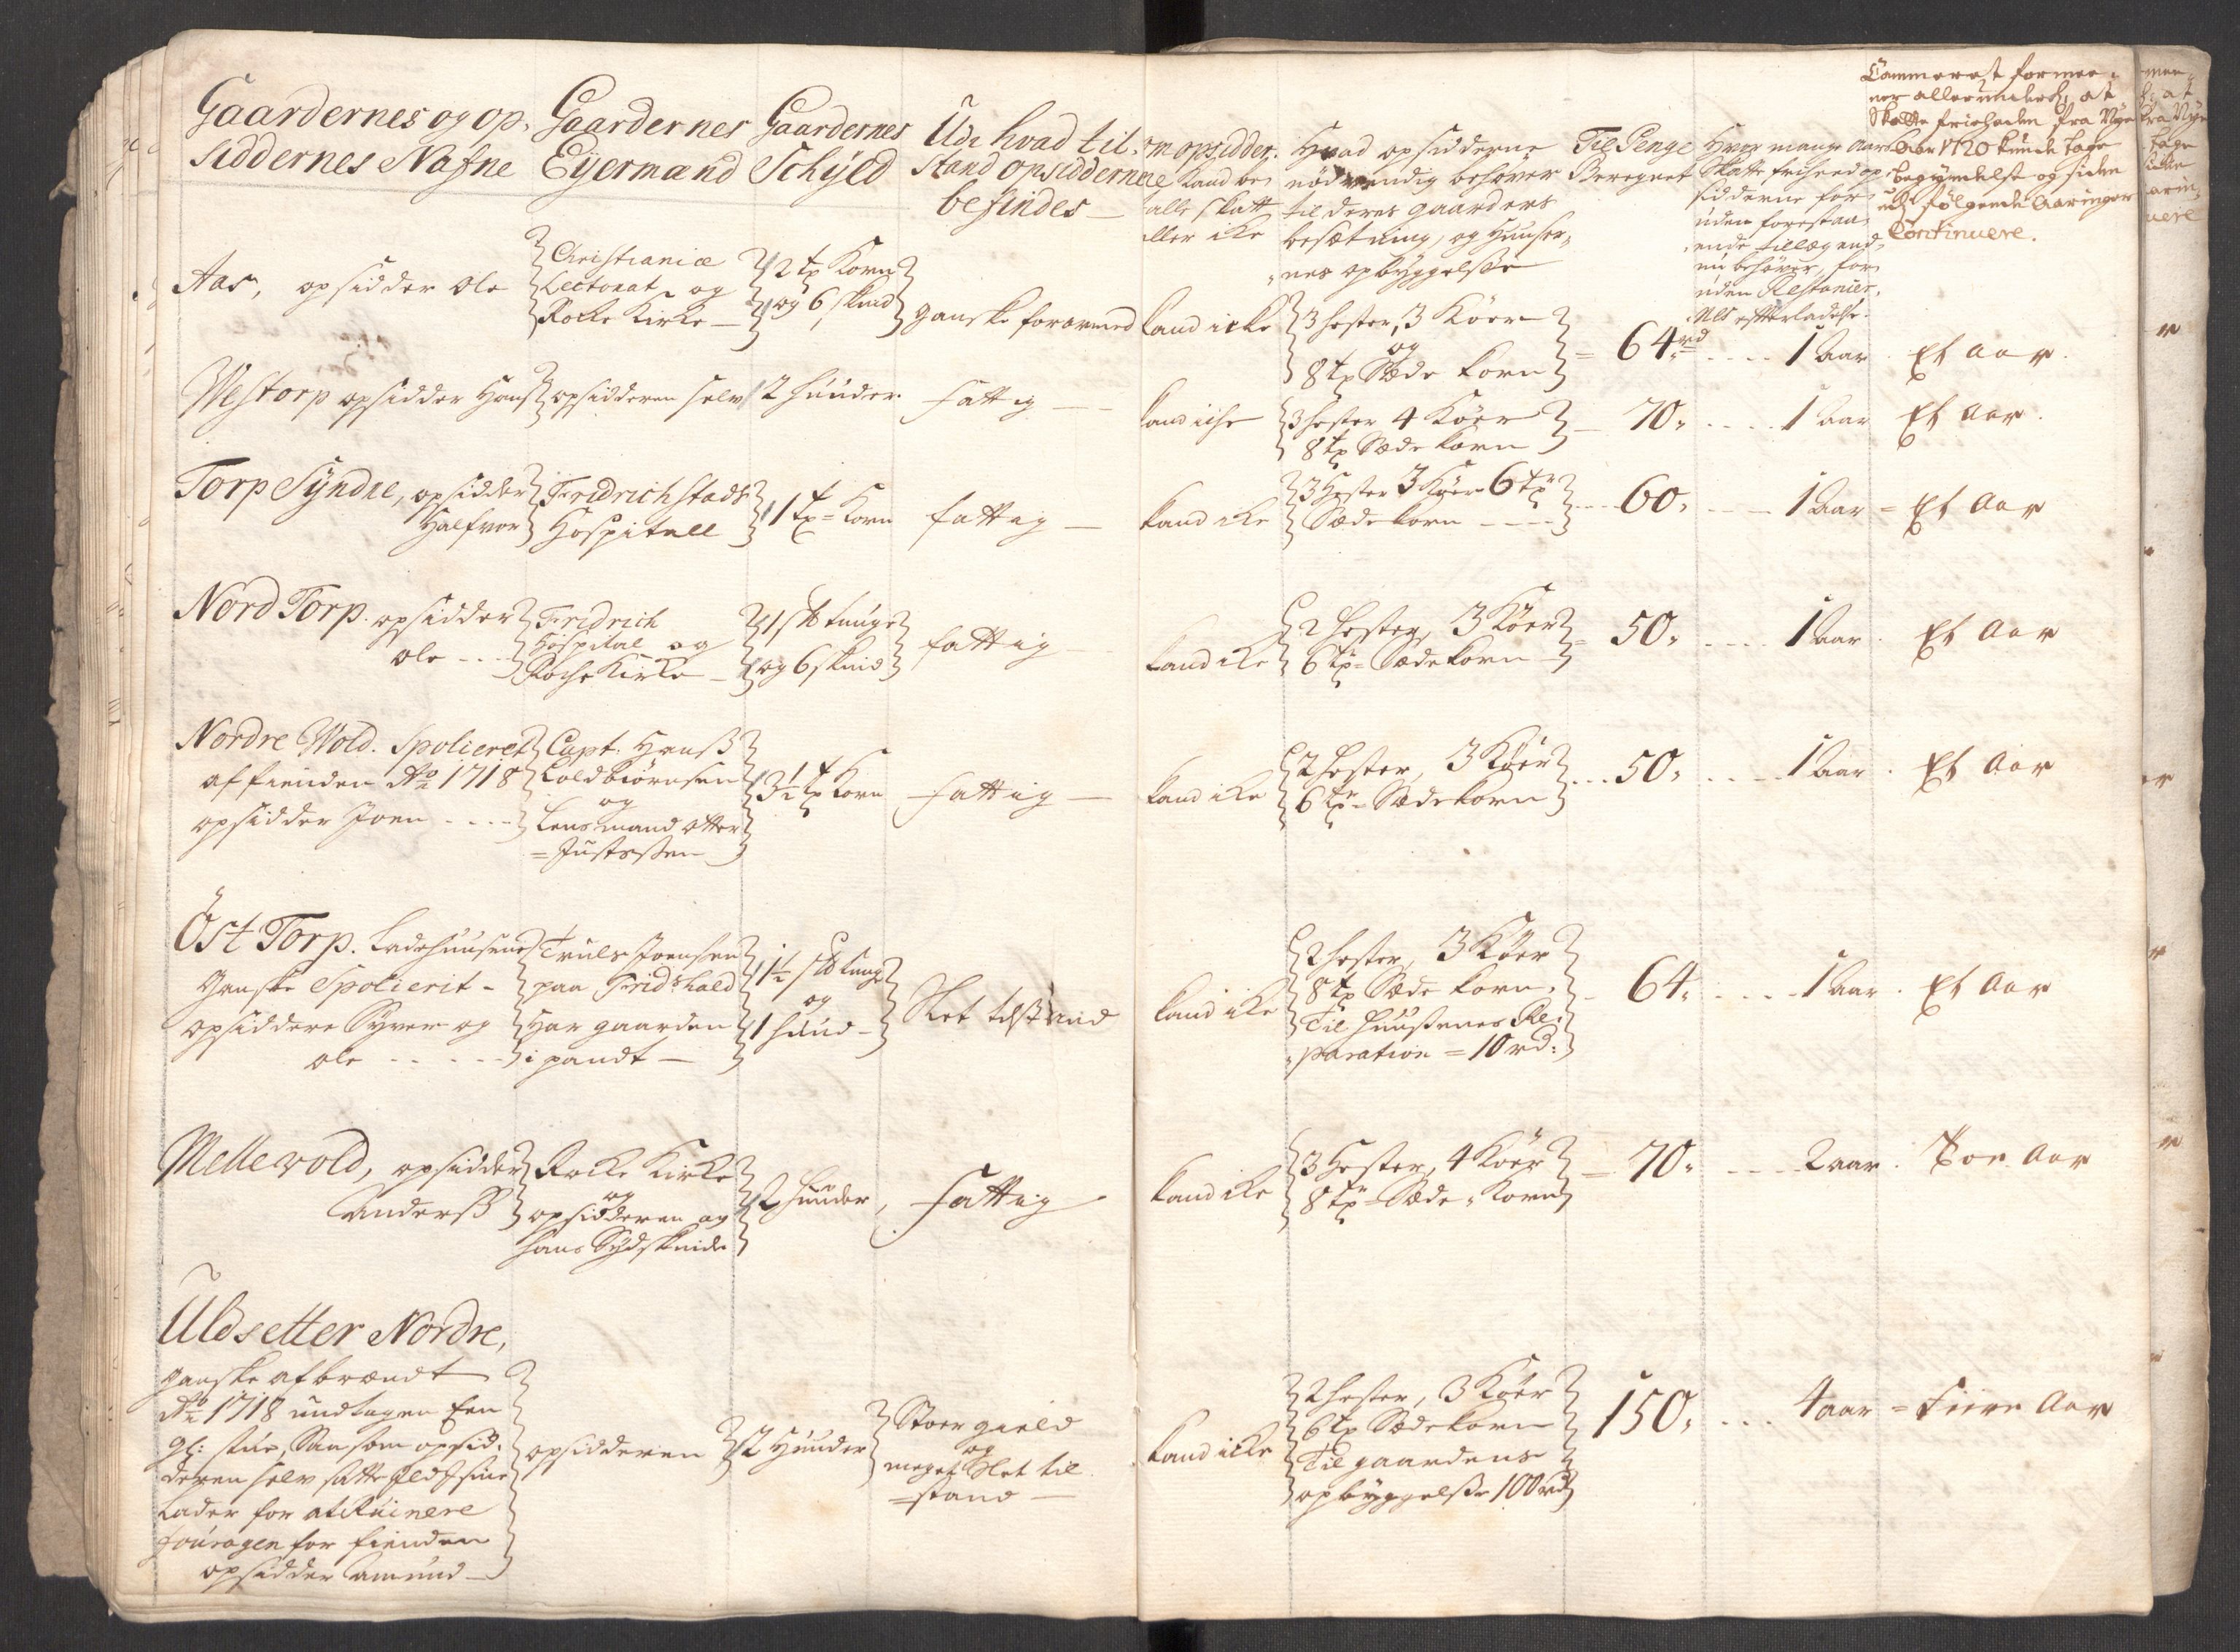 Gaardernes og op-
siddernes Nafne
Gaardernes
Eÿermænd
Gaardernes
Schÿld
Udi hvad til-
stand opsidderne
befindes
om opsidder-
ne kand be-
talle skatt
eller icke
Hvad opsidderne
nödvendig behöver
til deres gaarders
besætning, og huuser-
nes opbyggelsse
Til Penge
Beregnet
Hvor mange aars
Skatte friheed op-
sidderne for-
uden forestaa-
ende tillæg end-
nu behöver, for-
uden Restancer-
nes efterladelse.
Cammeret formee-
ner allerunderd: at
Skatte friheden fra Nye
Aar 1720 kunde tage
begyndelse og siden
udj fölgende Aaringer
Continuere.
Aas, opsidder Ole
Christianiæ
Lectorat og
Rocke Kirke
2 tp Korn
og 6 skind
ganske forarmed
kand icke
3 hester, 3 Köer
og
8 tp Sæde korn
64 rd
1 Aar
Et Aar
Westorp opsidder Hans
opsidderen selv
2 huuder
fattig
kand icke
3 hester 4 Köer
8 tp Sæde korn
70
1 Aar
Et Aar
Torp Sÿndre, opsidder
Halfvor
Fridrichstads
Hospitall
1 tp Korn
fattig
kand icke
3 Hester 3 Köer 6 tpr
Sædekorn
60
1 Aar
Et Aar
Nord Torp. opsidder
Ole
Fridrich
Hospital og
Rocke Kirke
og 6 skind
fattig
kand icke
2 hester, 3 Köer
6 tp Sædekorn
50
1 Aar
Et Aar
Nordre Wold. Spolieret
af fienden Ao 1718
opsidder Joen
Capt. Hanss
Coldbiörnsen
og
Lensmand Otter
Justessen
3½ tp Korn
fattig
kand icke
2 hester, 3 Köer
6 tp Sædekorn
50
1 Aar
Et Aar
Öst Torp. Ladehuusene
ganske Spolierit
opsiddere Syver og
Ole
Truls Joensen
paa Fridshald
har gaarden
i pandt
og
1 huud
Slet tilstand
kand icke
2 hester, 3 Köer
8 tp Sæde korn.
Til huussenes Re-
paration = 10 rd:
64
1 Aar
Et Aar
Mellevold, opsidder
Anderss
Rocke Kirke
og
opsidderen og
hans Sydskinde
2 huuder
fattig
kand icke
3 Hester, 4 Köer
8 tp Sæde Korn
70
2 aar
Toe Aar
Uldsetter Nordre,
ganske afbrændt
Ao 1718 undtagen Een
gl: stue, Saasom opsid-
deren selv satte Ild i sine
Lader for at Ruinere
fouragen for fienden
opsidder Amund
opsidderen
2 Huuder
Stoer gield
og
meget Slet til
stand
kand icke
2 hester, 3 Köer
6 tp Sædekorn
Til gaardens
opbyggelsse 100 rd
150
4 aar
Fiire Aar